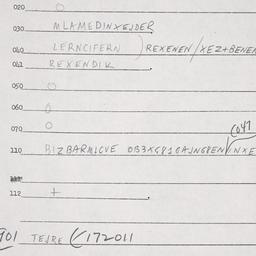 020 O
030 MLAMEDINXEJDER
040 LERNCIFERN ) REXENEN/XEZ+BENEN
041 REXENDIK
050 O
060 O
070 O
COY1
110 BIZBARMICVE
112 +
901 TEJRE (/172011